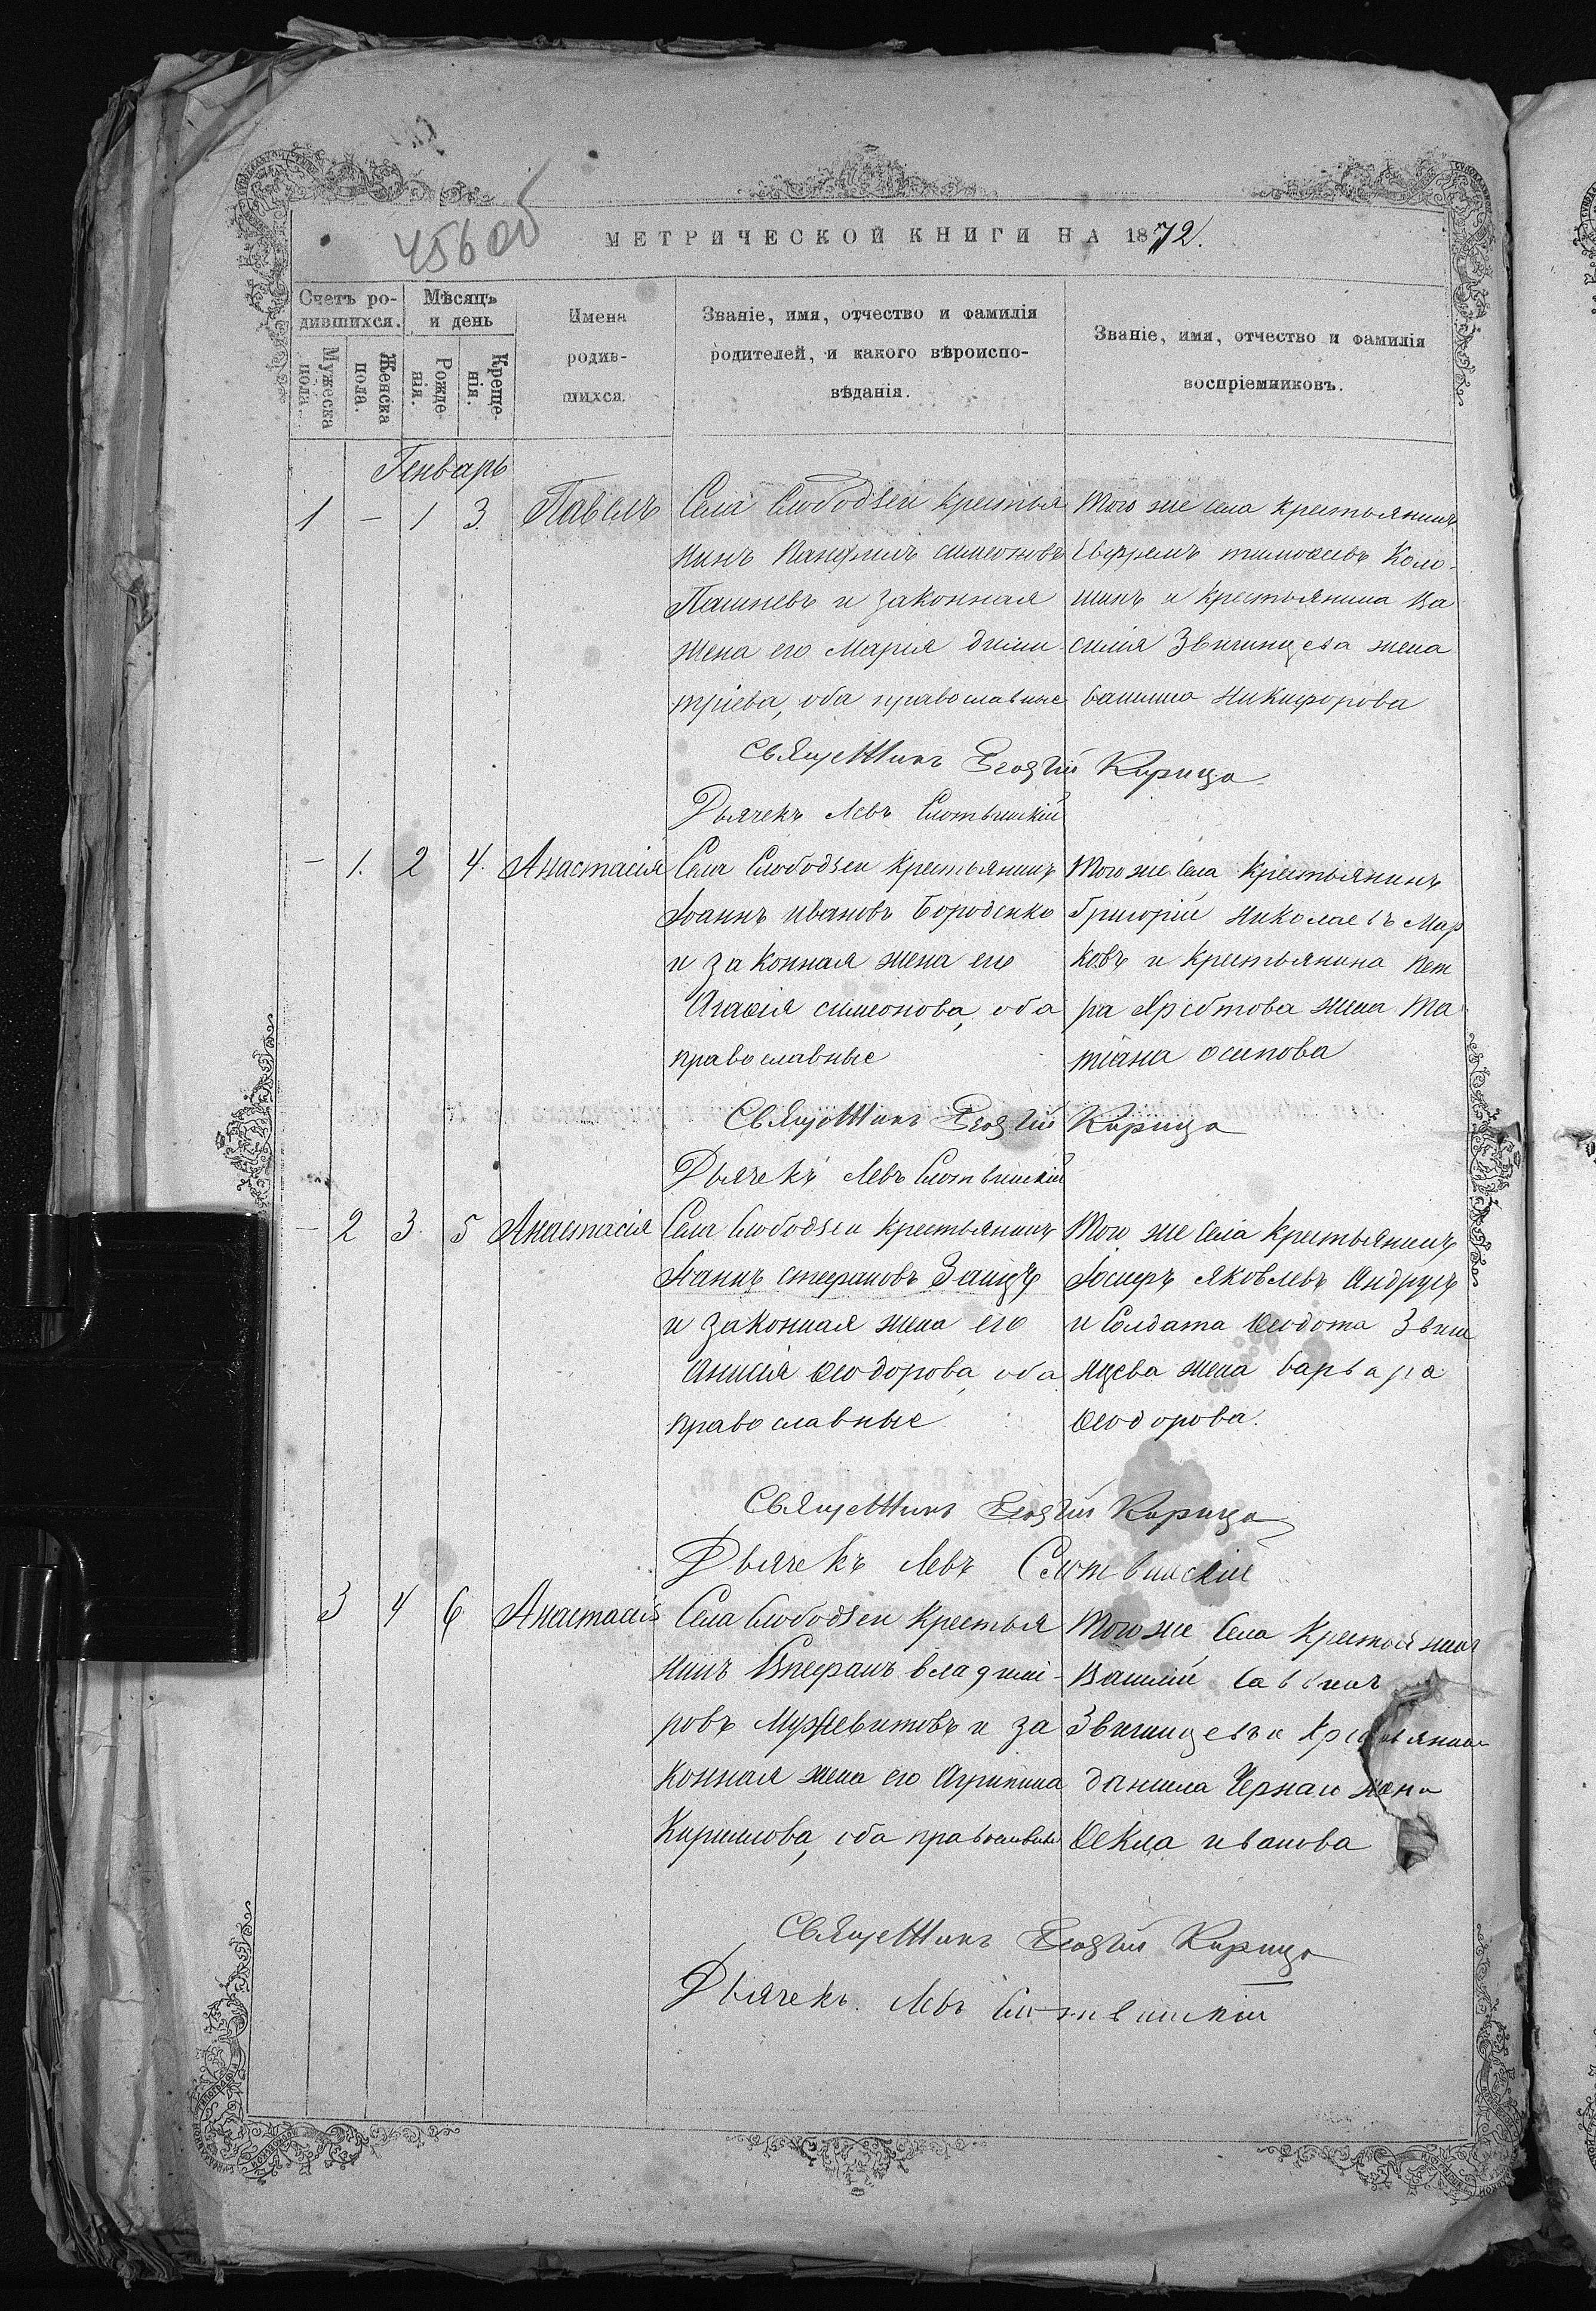 456 об
МЕТРИЧЕСКОЙ КНИГИ НА 1872.
Счетъ ро-
дившихся.
Мѣсяцъ
и день
Мужеска
пола.
Женска
пола.
Рожде-
нія.
Креще-
нія.
Имена
родив-
шихся.
Званіе, имя, отчество и фамилія
родителей, и какого вѣроиспо-
вѣданія.
Званіе, имя, отчество и фамилія
воспріемниковъ.
Генварь
1 - 1 3. Павелъ
Села Слободзеи крестья
нинъ Панфилъ симеоновъ
Пашневъ и законная
жена его Марія дими
тріева, оба православные
Того же села крестьянинъ
Евфремъ тимоѳеевъ Коло-
шинъ и крестьянина Ва
силія Звигинцева жена
Никифорова
Священникъ Георгій Кирица
Дьячекъ Левъ Слотвинскій
- 1. 2 4. Анастасія
Села Слободзеи крестьянинъ
Іоаннъ ивановъ Бороденко
и законная жена его
Агаѳія симеонова, оба
православные
Того же села крестьянинъ
Григорій Николаевъ Мар
ковъ и крестьянина Пет
ра жена Та
тіана осипова
Священникъ Георгій Кирица
Дьячекъ Левъ Слотвинскій
- 2 3. 5 Анастасія
Села Слободзеи крестьянинъ
Іоаннъ стефановъ Заицъ
и законная жена его
Анисія Ѳеодорова, оба
православные
Того же села крестьянинъ
Іосифъ Яковлевъ Андрусъ
и Солдата Ѳеодота Звиги
нцева жена варвара
Ѳеодорова.
Священникъ Георгій Кирица
Дьячекъ Левъ Слотвинскій
3 4 6. Анастасія
Села Слободзеи крестья
нинъ Стефанъ владими-
ровъ и за
конная жена его Агрипина
Кирилова, оба православные
Того же села крестьянинъ
Василій Саввинъ
Звигинцевъ и крестьянина
данила Чернаго жена
Ѳекла иванова
Священникъ Георгій Кирица
Дьячекъ Левъ Слотвинскій